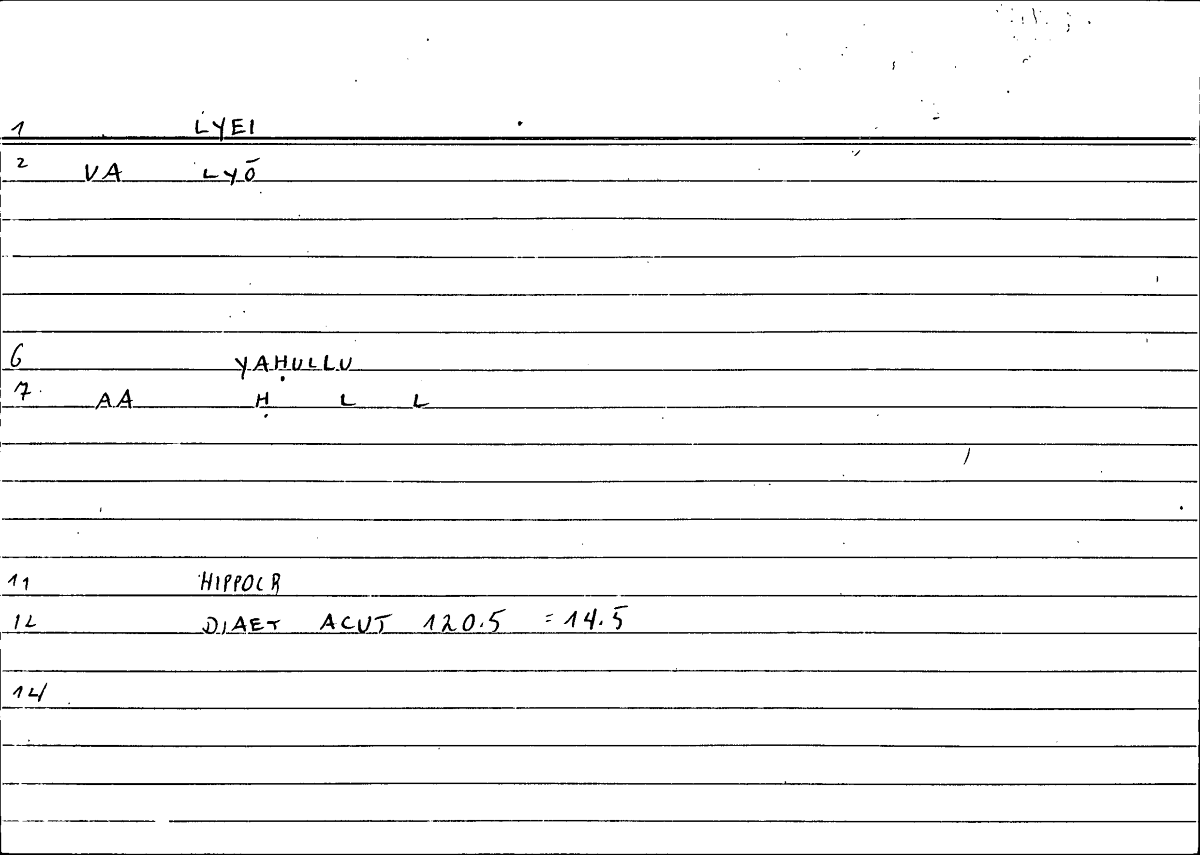 1 LYEI
2 VA LYŌ
6 YAḤULLU
7 AA Ḥ L L
11 HIPPOCR
12 DIAET ACUT 120.5 = 14.5
14